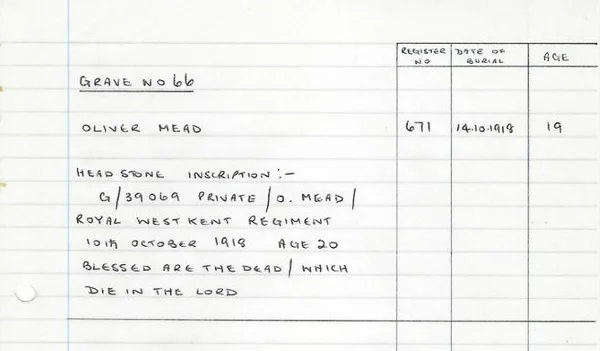 REGISTER NO DATE OF BURIAL AGE
GRAVE NO 66
OLIVER MEAD 671 14.10.1918 19
HEAD STONE INSCRIPTION :-
G/39069 PRIVATE / O. MEAD /
ROYAL WEST KENT REGIMENT
10th OCTOBER 1918 AGE 20
BLESSED ARE THE DEAD / WHICH
DIE IN THE LORD